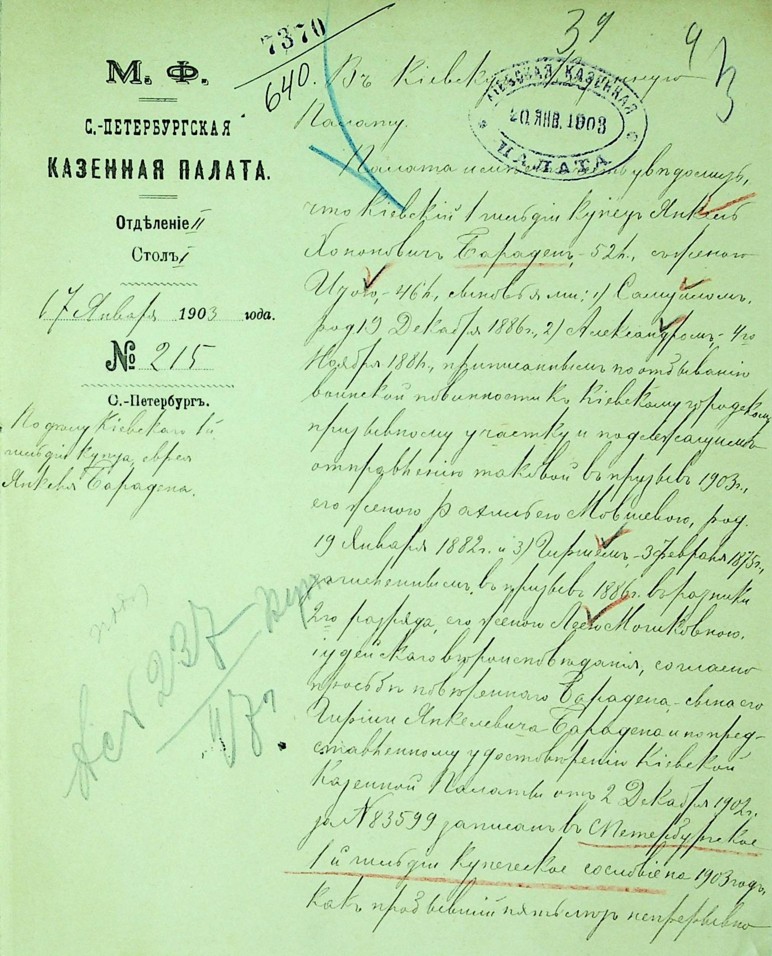 7370
640
39
М. Ф.
С.-ПЕТЕРБУРГСКАЯ
КАЗЕННАЯ ПАЛАТА.
Отдѣленіе II
Столъ I
17 Января 1903 года.
№ 215
С.-Петербургъ.
По дѣлу Кіевскаго 1й
гильдіи купца, еврея
Янкеля Барадена.
№ 237
КІЕВСКАЯ КАЗЕННАЯ
20 ЯНВ. 1903
ПАЛАТА
Въ Кіевскую Казенную
Палату.
Палата увѣдомить,
что Кіевскій 1 гильдіи купецъ Янкель
Хононовичъ Бараденъ - 52 л., съ женою
- 46 л., сыновьями: 1) Самуиломъ,
род 19 Декабря 1886 г., 2) Александромъ, - 4го
Ноября 1881 г., приписаннымъ по отбыванію
воинской повинности къ Кіевскому городскому
призывному участку и подлежащимъ
отправленію таковой въ призывъ 1903 г.,
его женою Рахилью Мовшевою, род.
19 Января 1882 г. и 3) Гиршемъ, - 3 февраля 1875 г.,
зачисленнымъ въ призывъ 1886 г. въ ратники
2го разряда, его женою Мошковною,
іудейскаго вѣроисповѣданія, согласно
просьбѣ повѣреннаго Барадена, - сына его
Гирши Янкелевича Барадена и по пред-
ставленному удостовѣренію Кіевской
Казенной Палаты отъ 2 Декабря 1902 г.
за № 83599 записанъ въ СПетербургское
1й гильдіи купеческое сословіе на 1903 годъ,
какъ пробывшій пять лѣтъ непрерывно